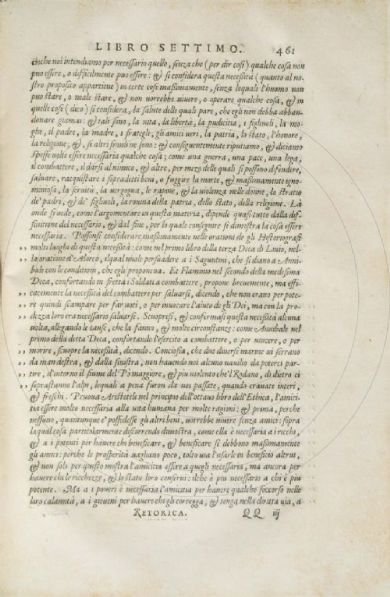 LIBRO SETTIMO. 461
cioche noi intendiamo per necessario quello, senza che (per dir cosi) qualche cosa non
può essere, o difficilmente può essere: & si considera questa necessità (quanto al no
stro proposito appartiene) in certe cosi massimamente, senza lequali l'huomo non
può stare, o male stare, & non vorrebbe vivere, o operare qualche cosa, & in
quelle cosi (dico) si considera, la salute delli quali pare, che egli non debba abban
donare giamai: & tali sono, la vita, la libertà, la pudicitia, i figliuoli, la mo
glie, il padre, la madre, i frategli, gli amici veri, la patria, lo stato, l'honore,
la religione, &, si altri simili ne sono: & conseguentemente riputiamo, & diciamo
spesse volte essere necessaria qualche cosa; come una guerra, una pace, una lega,
il combattere, il darsi al nimico, & altre, per mezo delli quali si possono difendere,
salvare, racquistare i sopradetti beni, o fuggire la morte, & massimamente igno
miniosa, la servitù, la vergogna, le rapine, & la violenza nelle donne, la stratio
de' padri, & de' figliuoli, la rovina della patria, dello stato, della religione. Là
onde si vede, como l'argomentare in questa materia, dipende quasi tutto dalla dif-
finitione del necessario, & dal fine, per lo quale conseguire si dimostra la cosa essere
necessaria. Possonsi considerare massimamente nelle orationi de gli Historiografi
molti luoghi di questa necessità: come nel primo libro della terza Deca di Livio, nel-
la oratione d'Alorco, ilqual vuole persuadere a i Saguntini, che si diano a Anni-
bale con le conditioni, che egli proponeva. Et Flaminio nel secondo della medesima
Deca, confortando in fretta i Soldati a combattere, propone brevemente, ma effi-
cacemente la necessità del combattere per salvarsi, dicendo, che non erano per pote-
re quindi scampare per far voti, o per invocare l'aiuto de gli Dei, ma con la pro-
dezza loro era necessario salvarsi. Scuopresi, & confermasi questa necessità alcuna
volta, allegando le cause, che la fanno, & molte circostanze: come Annibale nel
primo della detta Deca, confortando l'esercito a combattere, o per vincere, o per
morire, scuopre la necessità, dicendo. Conciosia, che due diversi marine ui serrano
da man destra, & dalla sinistra, non havendo noi alcuno navilio da poterci parti
re, d'intorno il fiume del Pò maggiore, & più violento che'l Rodano, di dietro ci
soprastanno l'alpi, lequali a pena furon da voi passate, quando eravate interi,
& freschi. Pruova Aristotile nel principio dell'ottavo libro dell'Ethica, l'amici-
tia essere molto necessaria alla vita humana per molte ragioni: & prima, perche
nessuno, quantunque e' possedesse gli altri beni, vorrebbe vivere senza amici: sopra
laqual cosa particolarmente discorrendo dimostra, come ella è necessaria a i ricchi,
& a i potenti per havere chi beneficare, & beneficare si debbono massimamente
gli amici: perche le prosperità vagliono poco, tolto via l'usarle in beneficio altrui,
& non solo per questo mostra l'amicitia essere a quegli necessaria, ma ancora per
havere chi le ricchezze, & lo stato loro conservi: ilche è più necessario a chi è più
potente. Ma a i poveri è necessaria l'amicitia per havere qualche soccorso nelle
loro calamità, a i giovani per havere che gli corregga, & tenga nella diritta via, a
RETORICA. QQ iij